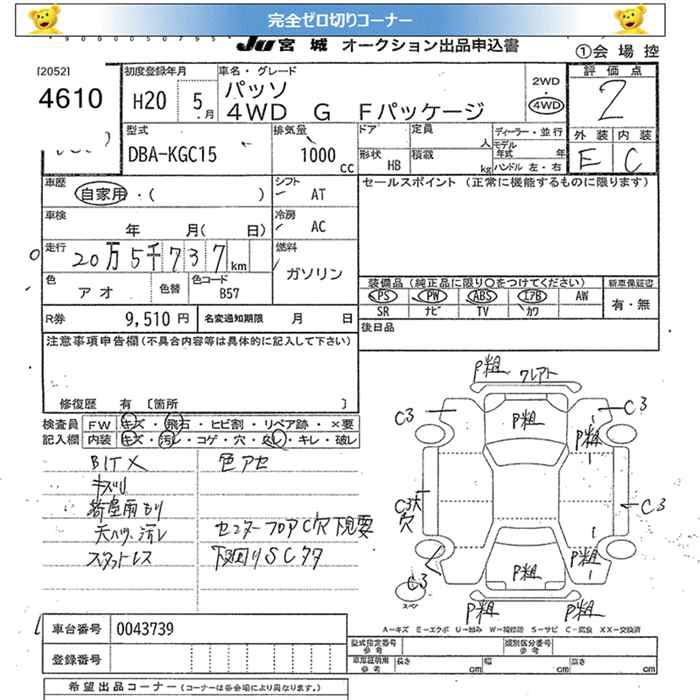 完全ゼロ切りコーナー
JU 宮城 オークション出品申込書
①会場控
[2052]
4610
初度登録年月
H20 5月
車名・グレード
パッソ
4WD G Fパッケージ
2WD
・
4WD
評価点
2
型式
DBA-KGC15
排気量
1000 cc
ドア
定員 人
ディーラー・並行
モデル年式 年
形状 HB
積載 kg
ハンドル 左・右
外装 内装
E C
車歴
自家用・( )
シフト AT
セールスポイント (正常に機能するものに限ります)
車検
年 月( 日)
冷房 AC
走行
20万5千737km
燃料
ガソリン
色 アオ
色替
色コード B57
装備品(純正品に限り○をつけてください)
新車保証書
PS PW ABS エアB AW
有・無
SR ナビ TV カワ
R券 9,510円
名変通知期限 月 日
後日品
注意事項申告欄(不具合内容等は具体的に記入して下さい)
修復歴 有 〔箇所
検査員記入欄
FW キズ・飛石・ヒビ割・リペア跡・×要
内装 キズ・汚レ・コゲ・穴・ハレ・キレ・破レ
色アセ
天ハリ汚レ
センターフロアC穴 下見要
スタットレス
下回りSCサタ
P粗
C3
P粗
C3
P粗
C3大
穴
C3
C3
P粗
P粗
スペア
P粗
P粗
A=キズ E=エクボ U=凹み W=補修跡 S=サビ C=腐食 XX=交換済
車台番号 0043739
登録番号
型式指定番号 参考
類別区分番号 参考
車庫証明用 参考
長さ cm
幅 cm
高さ cm
希望出品コーナー (コーナーは各会場により異なります。)